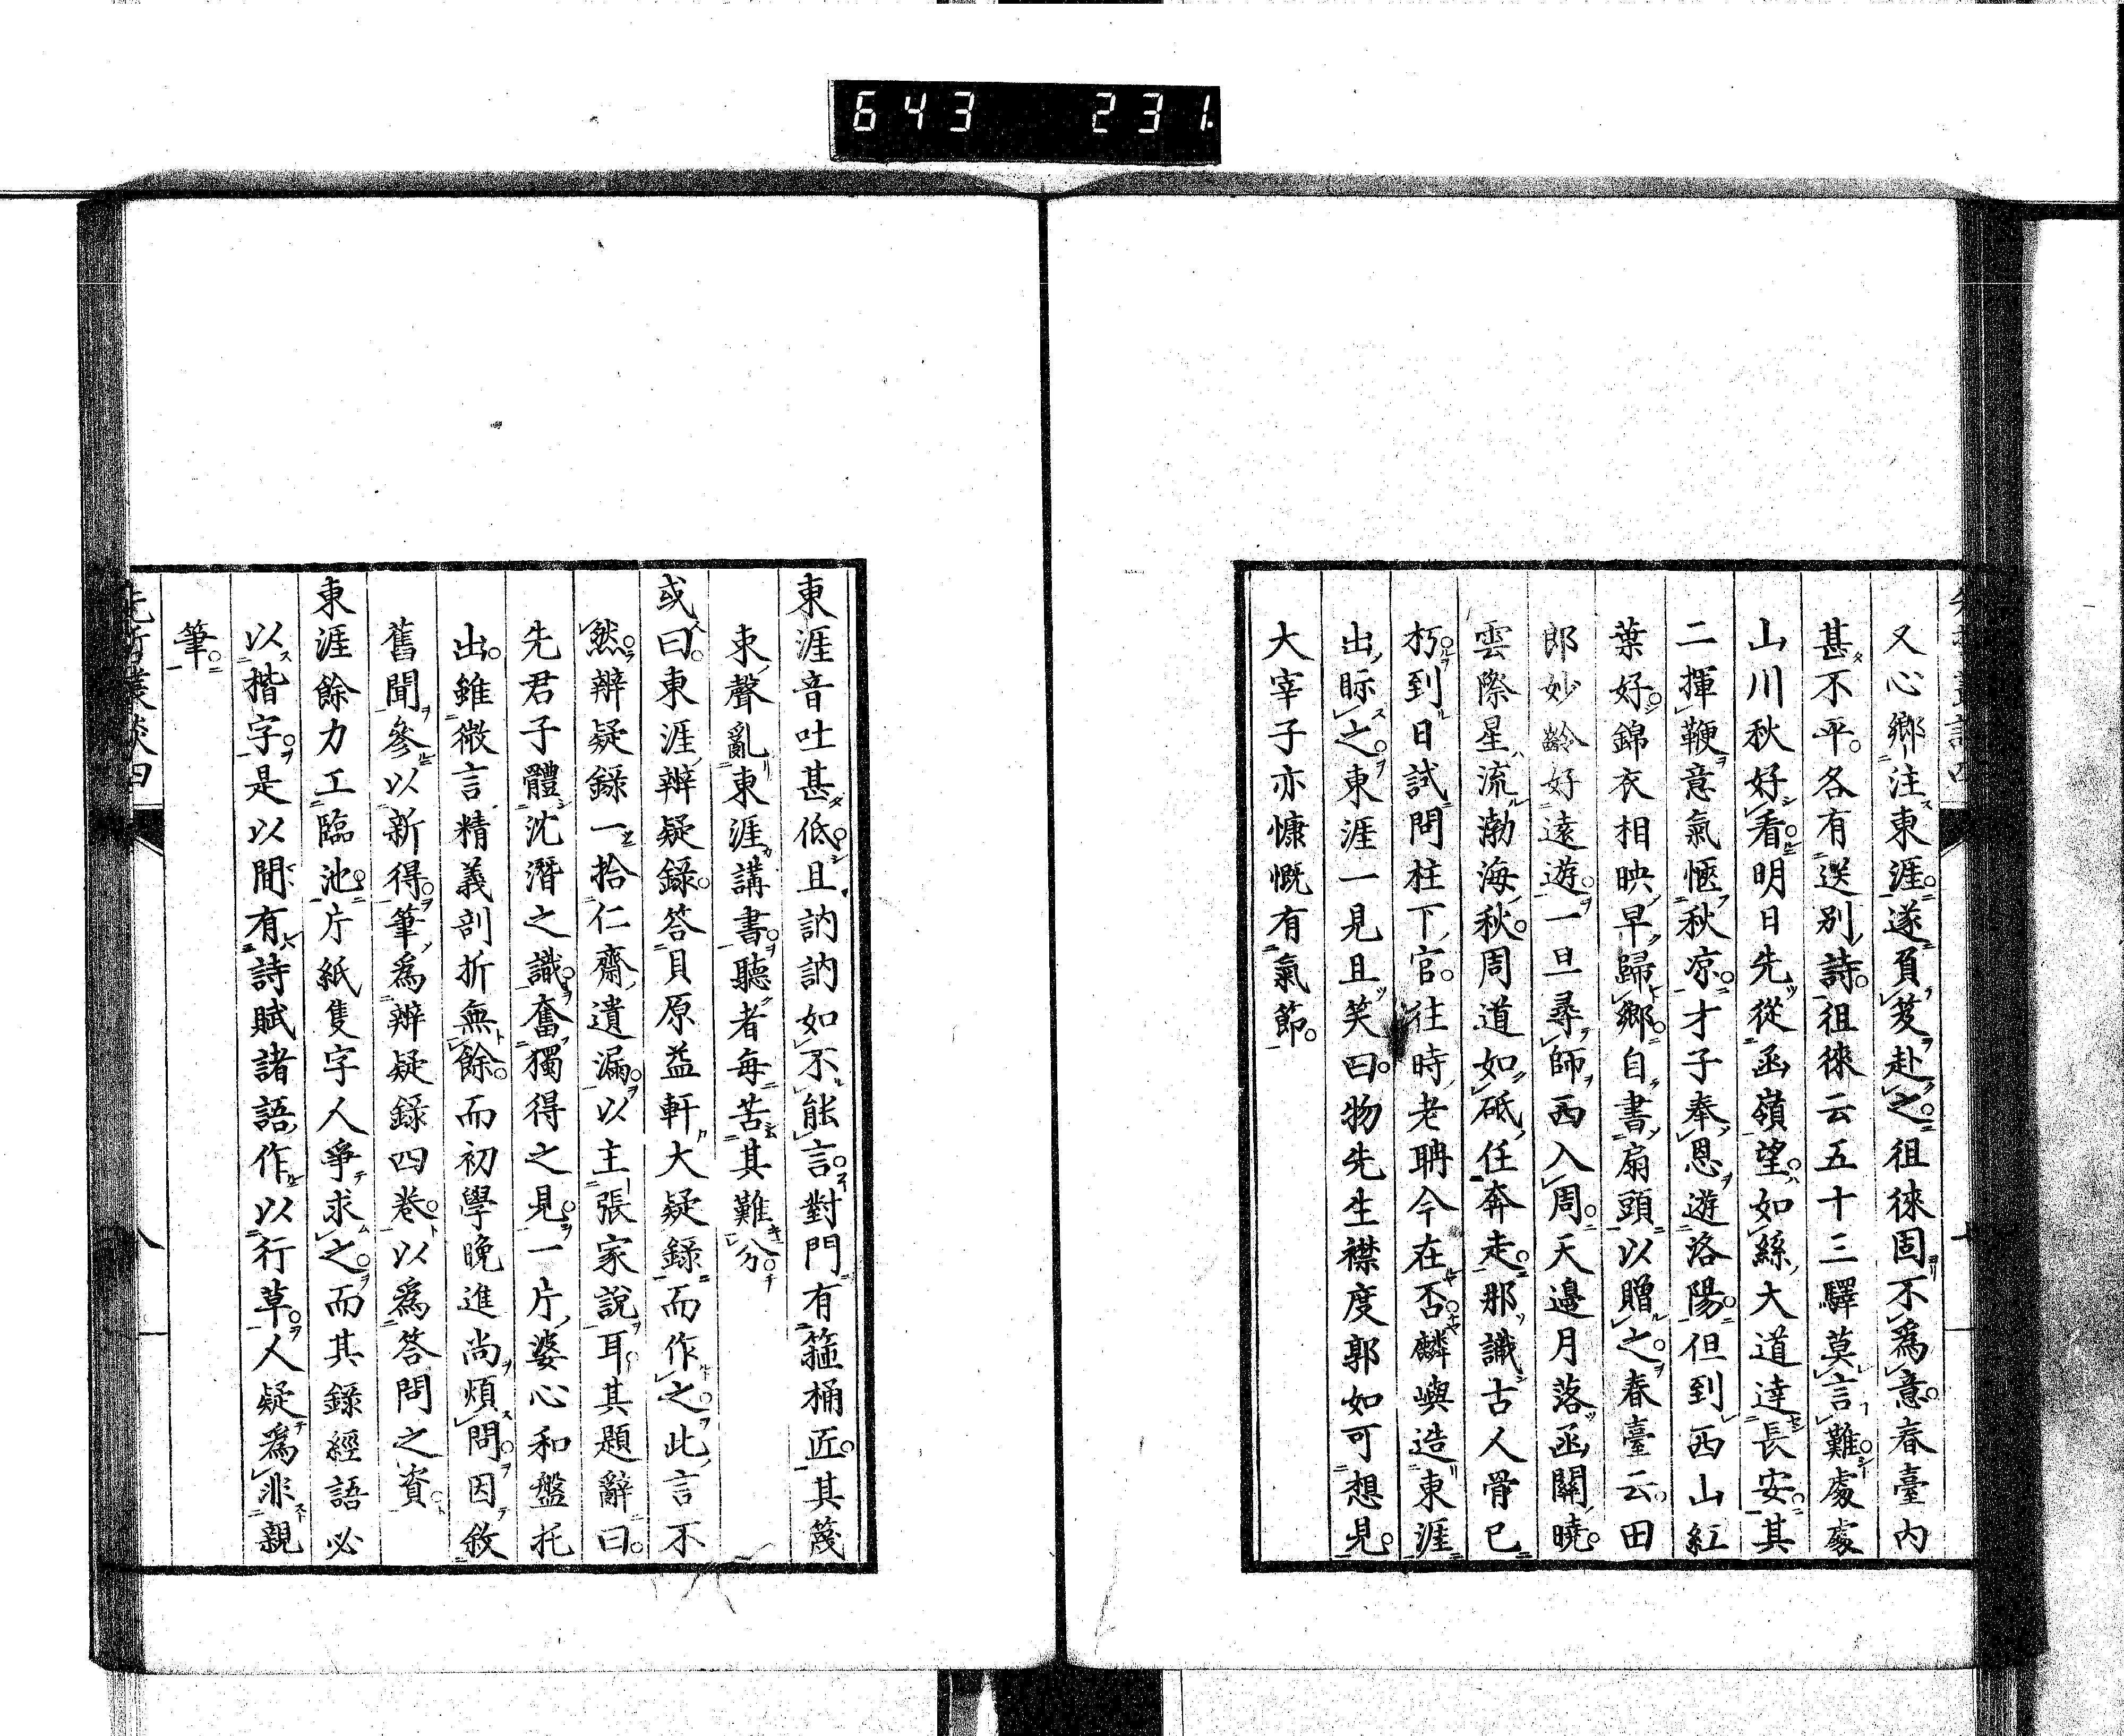 643 231.
又心鄉注東涯遂負笈赴之徂徠固不爲意春臺內
甚不平各有送別詩徂徠云五十三驛莫言難處處
山川秋好看明日先從函嶺望如絲大道達長安其
二揮鞭意氣愜秋凉才子奉恩遊洛陽但到西山紅
葉好錦衣相映早歸鄉自書扇頭以贈之春臺云田
郎妙齡好遠遊一旦尋師西入周天邊月落函關曉
雲際星流渤海秋周道如砥任奔走那識古人骨已
朽到日試問柱下官往時老聃今在否麟嶼造東涯
出眎之東涯一見且笑曰物先生襟度郭如可想見
大宰子亦慷慨有氣節
東涯音吐甚低且訥訥如不能言對門有箍桶匠其篾
束聲亂東涯講書聽者每苦其難分
或曰東涯辨疑錄答貝原益軒大疑錄而作之此言不
然辨疑錄一拾仁齋遺漏以主張家說耳其題辭曰
先君子體沈潛之識奮獨得之見一片婆心和盤托
出雖微言精義剖折無餘而初學晚進尚煩問因敘
舊聞參以新得筆爲辨疑錄四卷以爲答問之資
東涯餘力工臨池片紙隻字人爭求之而其錄經語必
以楷字是以間有詩賦諸語作以行草人疑爲非親
筆
先哲叢談四
八